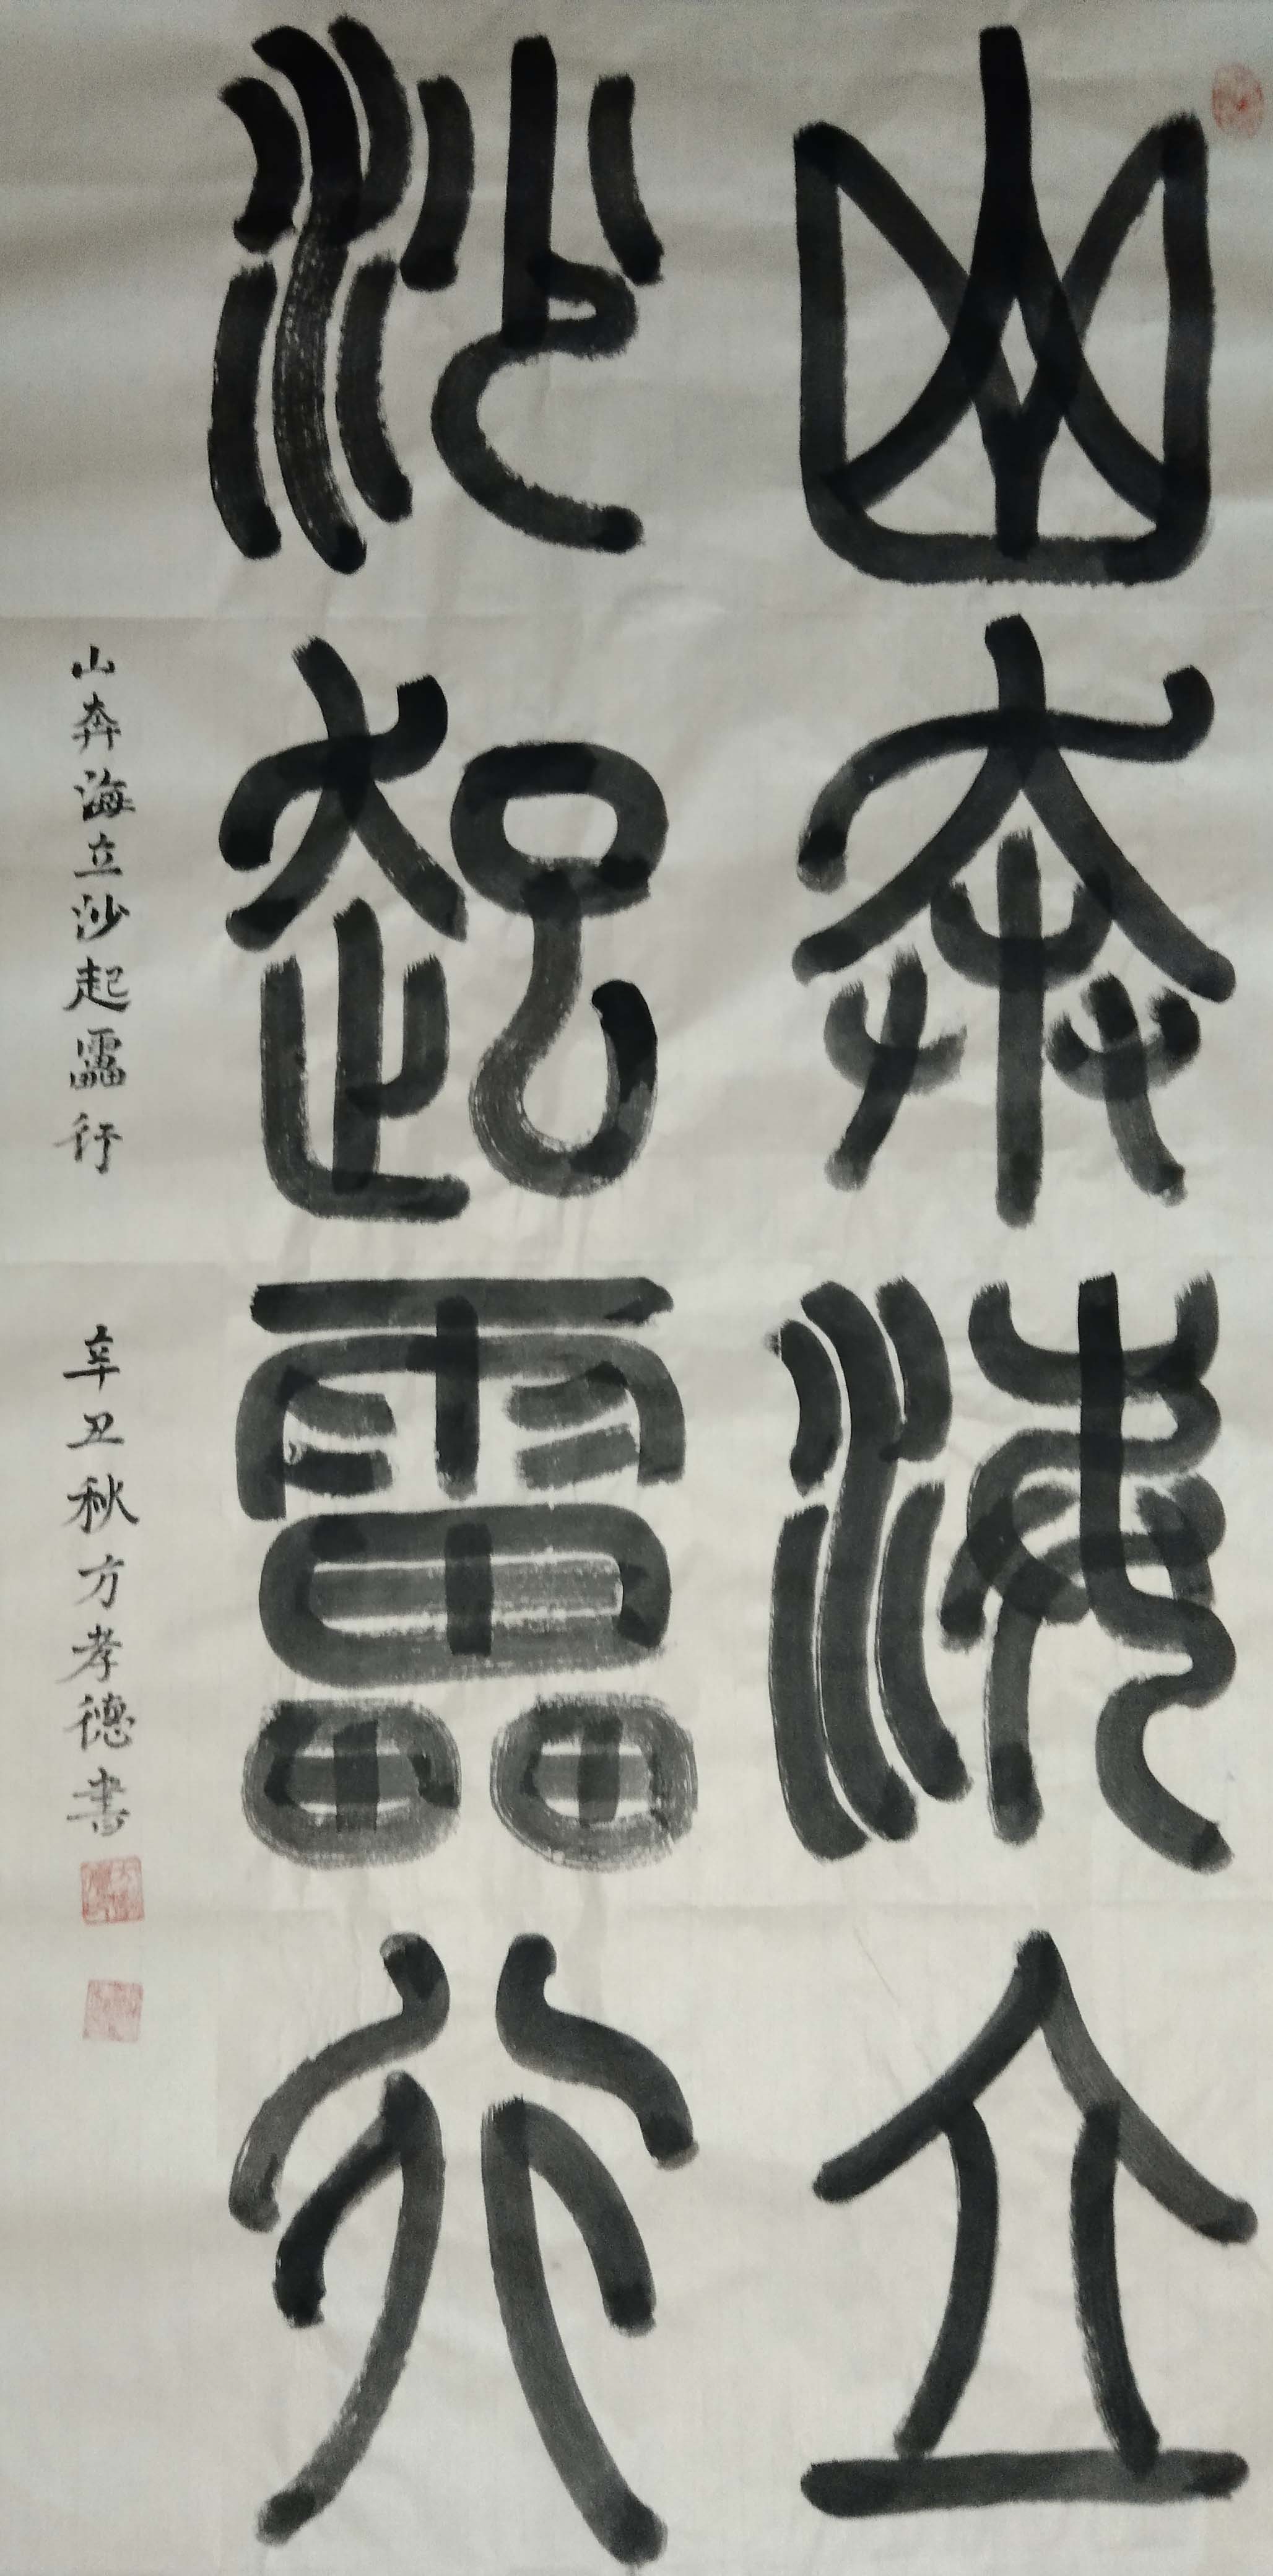 山奔海立
沙起靁行
山奔海立沙起靁行 辛丑秋方孝德書